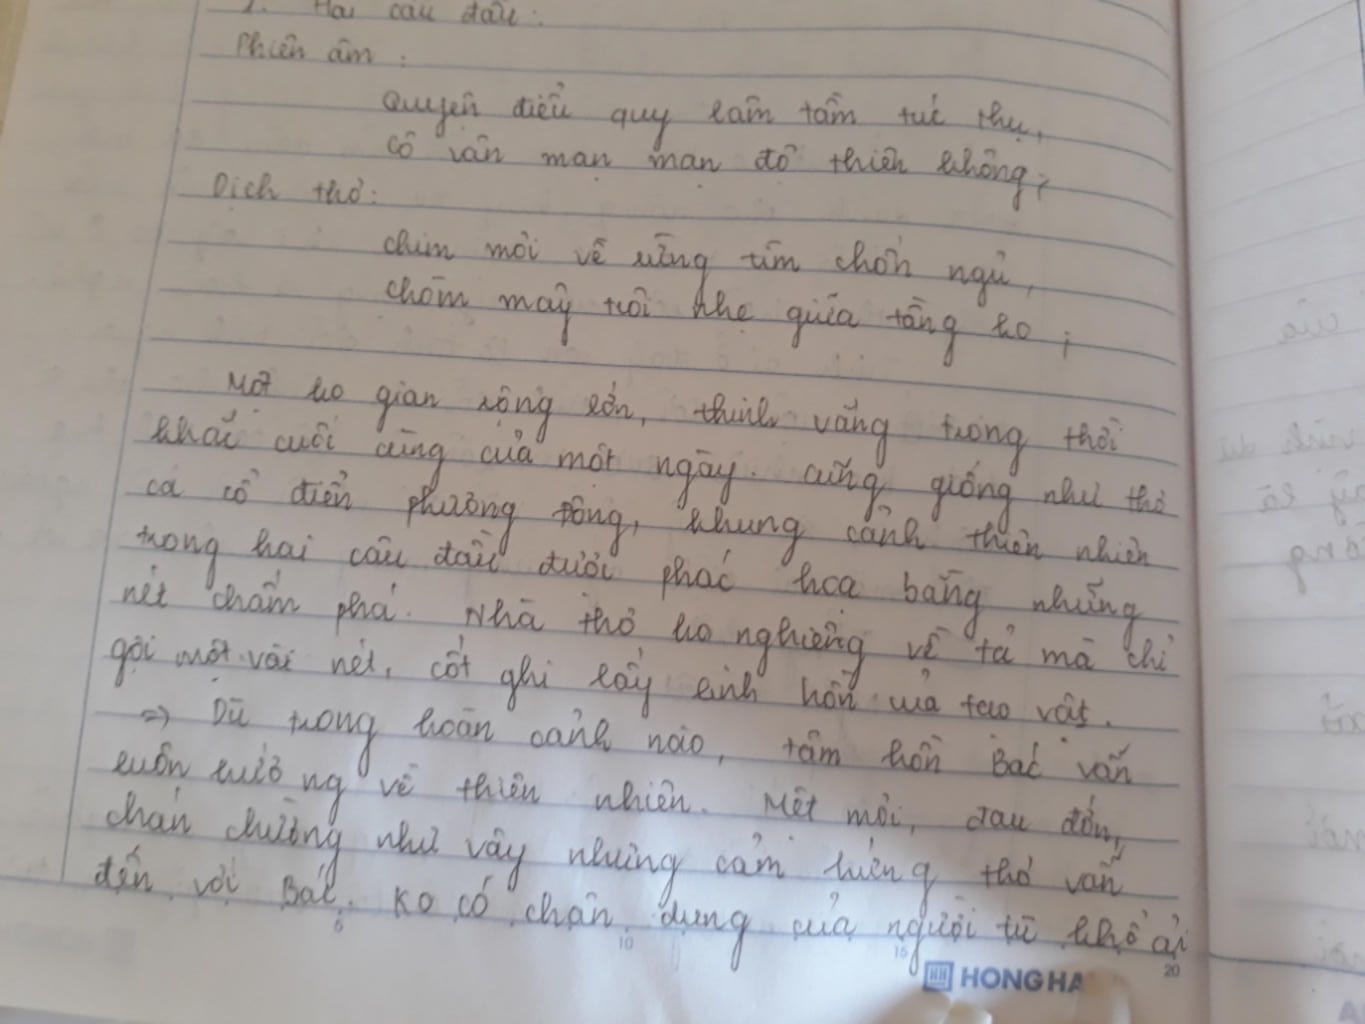 1. Hai câu đầu:
Phiên âm:
Quyện điểu quy lâm tầm túc thụ,
Cô vân mạn mạn độ thiên không;
Dịch thơ:
Chim mỏi về rừng tìm chốn ngủ,
Chòm mây trôi nhẹ giữa tầng ko;
Một ko gian rộng lớn, thinh vắng trong thời
khắc cuối cùng của một ngày. Cũng giống như thơ
ca cổ điển phương Đông, khung cảnh thiên nhiên
trong hai câu đầu được phác họa bằng những
nét chấm phá. Nhà thơ ko nghiêng về tả mà chỉ
gợi một vài nét, cốt ghi lấy linh hồn của tạo vật.
=> Dù trong hoàn cảnh nào, tâm hồn Bác vẫn
luôn hướng về thiên nhiên. Mệt mỏi, đau đớn,
chán chường như vậy nhưng cảm hứng thơ vẫn
đến với Bác. Ko có chân dung của người tù khổ ải
5 10 15 20
HH HONG HA